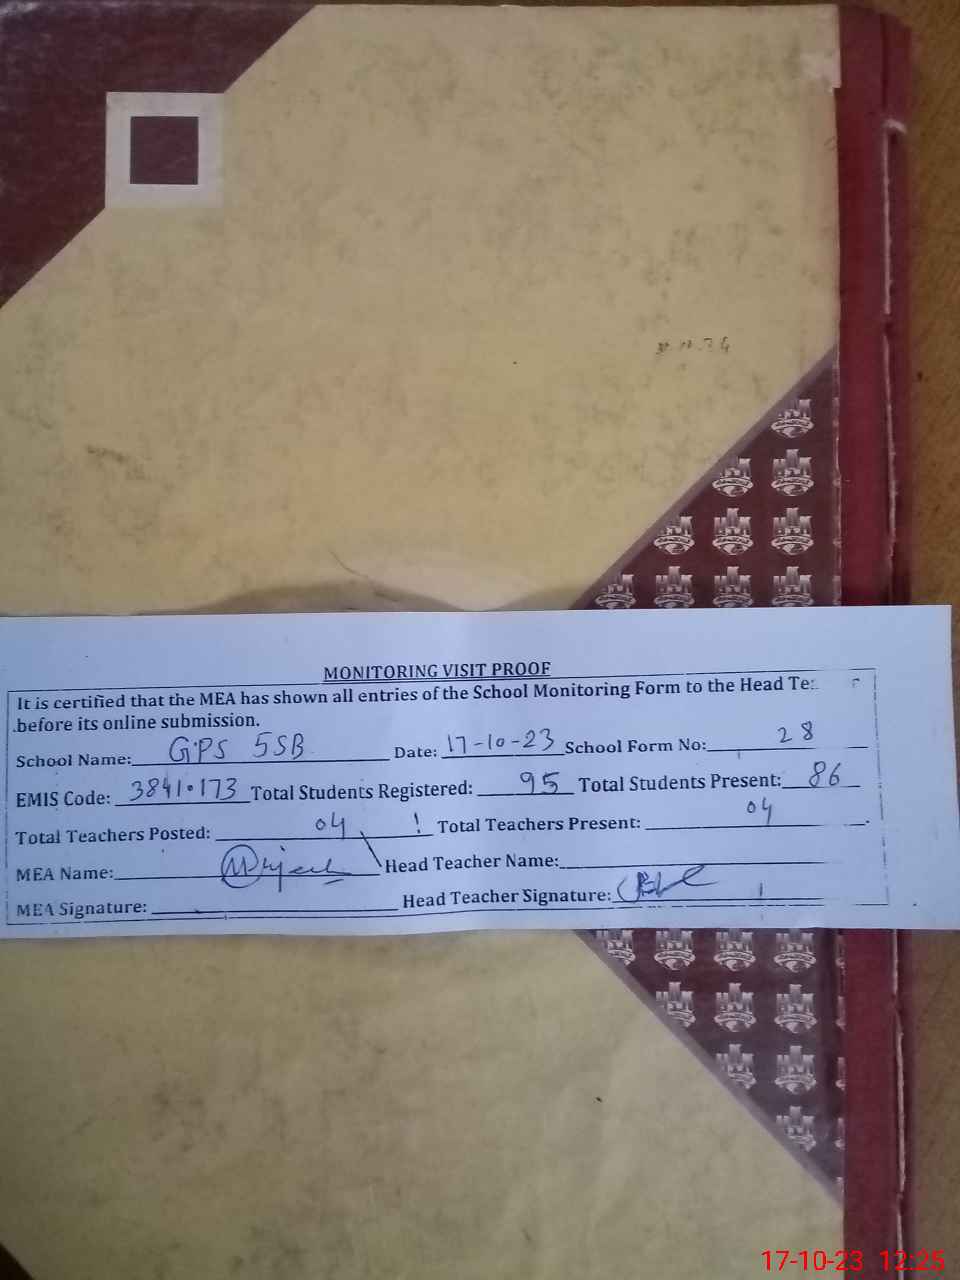 MONITORING VISIT PROOF
It is certified that the MEA has shown all entries of the School Monitoring Form to the Head
before its online submission.
School Name: GPS 5SB Date: 17-10-23 School Form No: 28
EMIS Code: 3841.173 Total Students Registered: 95 Total Students Present: 86
Total Teachers Posted: 04 Total Teachers Present: 04
MEA Name: Head Teacher Name:
MEA Signature: Head Teacher Signature:
17-10-23 12:25